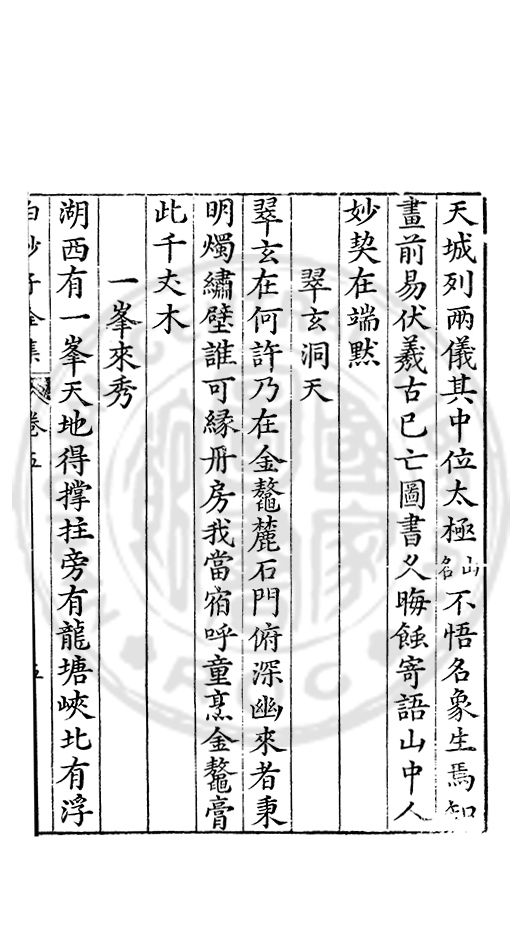 天城列兩儀其中位太極山名不悟名象生焉知
畫前易伏羲古已亡圖書久晦蝕寄語山中人
妙契在端默
翠玄洞天
翠玄在何許乃在金鼇麓石門俯深幽來者秉
明燭繡壁誰可緣丹房我當宿呼童烹金鼇膏
此千丈木
一峯來秀
湖西有一峯天地得撐拄旁有龍塘峽北有浮
白沙子全集 卷五 五